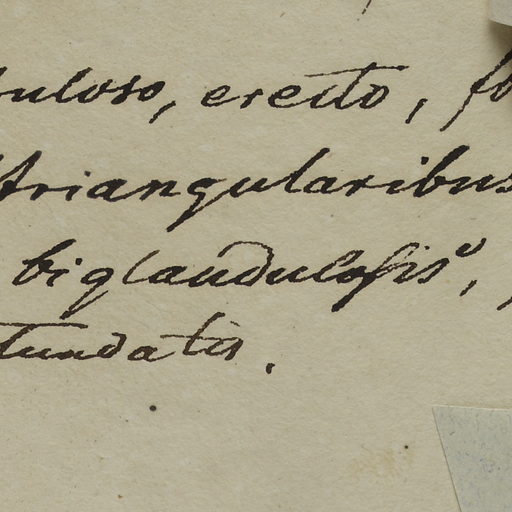 uloso, erecto, fo
triangularibus
biglandulosis,
tundatis.